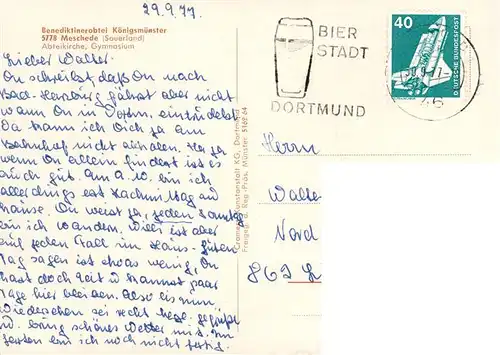 29.9.77
Benediktinerabtei Königsmünster
5778 Meschede (Sauerland)
Abteikirche, Gymnasium
Lieber Walter.
Du schreibst, daß Du nach
Bad-Harzburg fährst aber nicht
wann Du in Dortm. eintrudelst
Da kann ich Dich ja am
Bahnhof nicht abholen. Na ja
wenn Du allein findest ist es
auch gut. Am 8.10. bin ich
allerdings erst Nachmittag zu
hause. Du weist ja, jeden Samstag
bin ich Wandern. Willi ist aber
auf jeden Fall im Haus. Guten
Tag sagen ist etwas wenig, Du
hast doch Zeit u. kannst paar
Tage hier bleiben. Also bis zum
Wiedersehen sei recht herzl. gegrüßt
und bring schönes Wetter mit. Im
bin ich noch nicht fertig.
BIER
STADT
DORTMUND
40
DEUTSCHE BUNDESPOST
Herrn
Walte
Nord